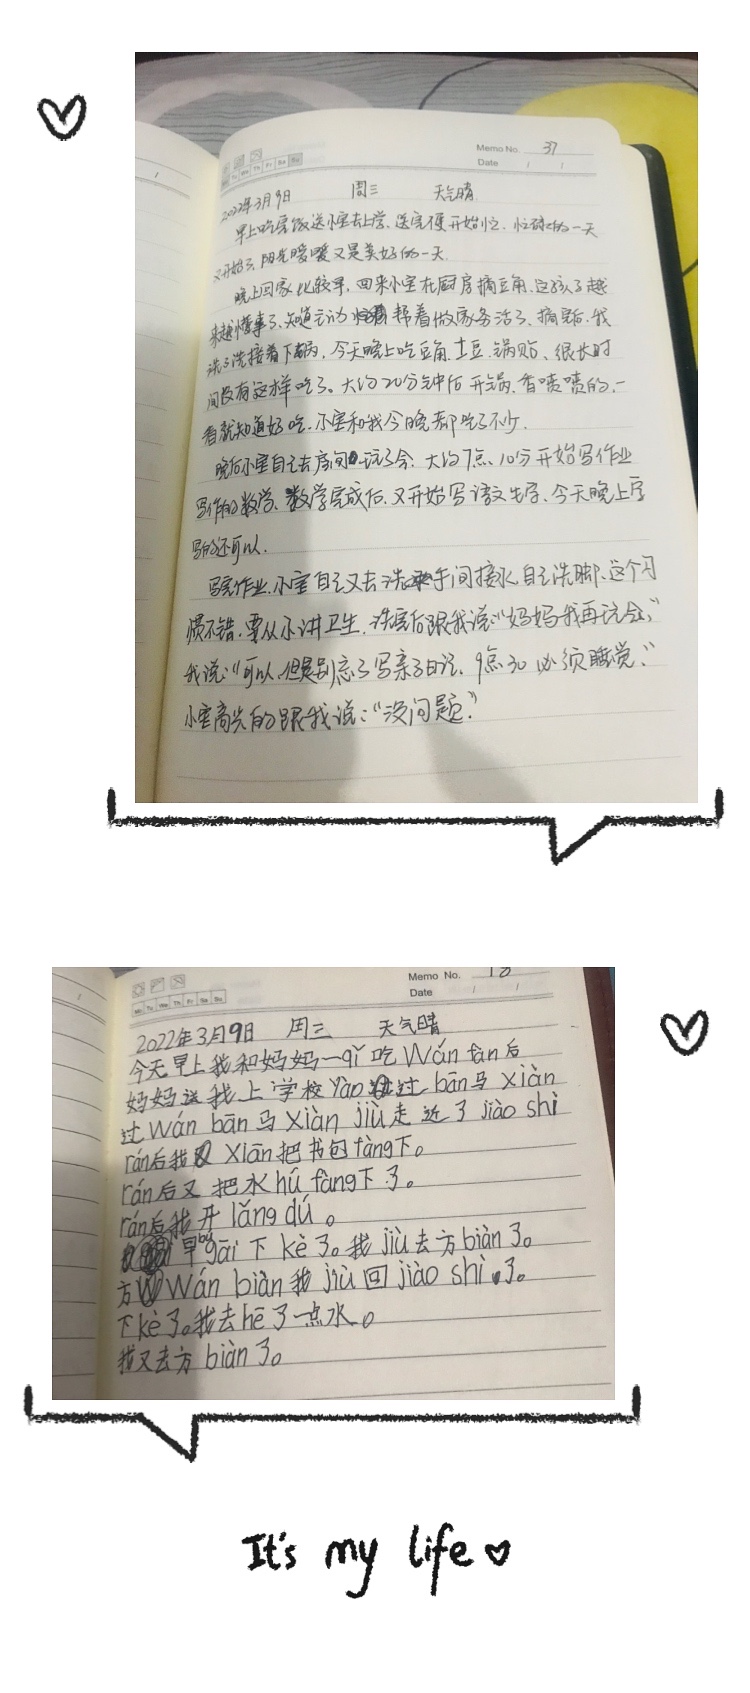 Memo No. 37
Date / /
Mo Tu We Th Fr Sa Su
2022年3月9日 周三 天气晴
早上吃完饭送小宝去上学,送完便开始忙,忙碌的一天
又开始了,阳光暖暖又是美好的一天.
晚上回家比较早,回来小宝在厨房摘豆角,这孩子越
来越懂事了,知道主动帮着做家务活了,摘完后,我
洗了洗接着下锅,今天晚上吃豆角、土豆、锅贴、很长时
间没有这样吃了。大约20分钟后开锅,香喷喷的,一
看就知道好吃.小宝和我今晚都吃了不少.
晚后小宝自己去房间玩了会.大约7点10分开始写作业
写作的数学、数学完成后,又开始写语文生字、今天晚上字
写的还可以.
写完作业,小宝自己又去洗手间接水,自己洗脚、这个习
惯不错,要从小讲卫生,洗完后跟我说:“妈妈我再玩会,”
我说:“可以,但是别忘了写亲子日记,9点30必须睡觉.”
小宝高兴的跟我说:“没问题.”
Memo No. 18
Date / /
Mo Tu We Th Fr Sa Su
2022年3月9日 周三 天气晴
今天早上我和妈妈一qǐ吃Wán fàn后
妈妈送我上学校 Yào 过bān马xiàn
过wán bān马xiàn jiù走近了jiào shì
rán后我 xiān把书包fàng下。
rán后又把水hú fàng下了。
rán后我开lǎng dú。
早gāi下kè了。我jiù去方biàn了。
方Wán biàn我jiù回jiào shì了。
下kè了。我去hē了一点水。
我又去方biàn了。
It's my life